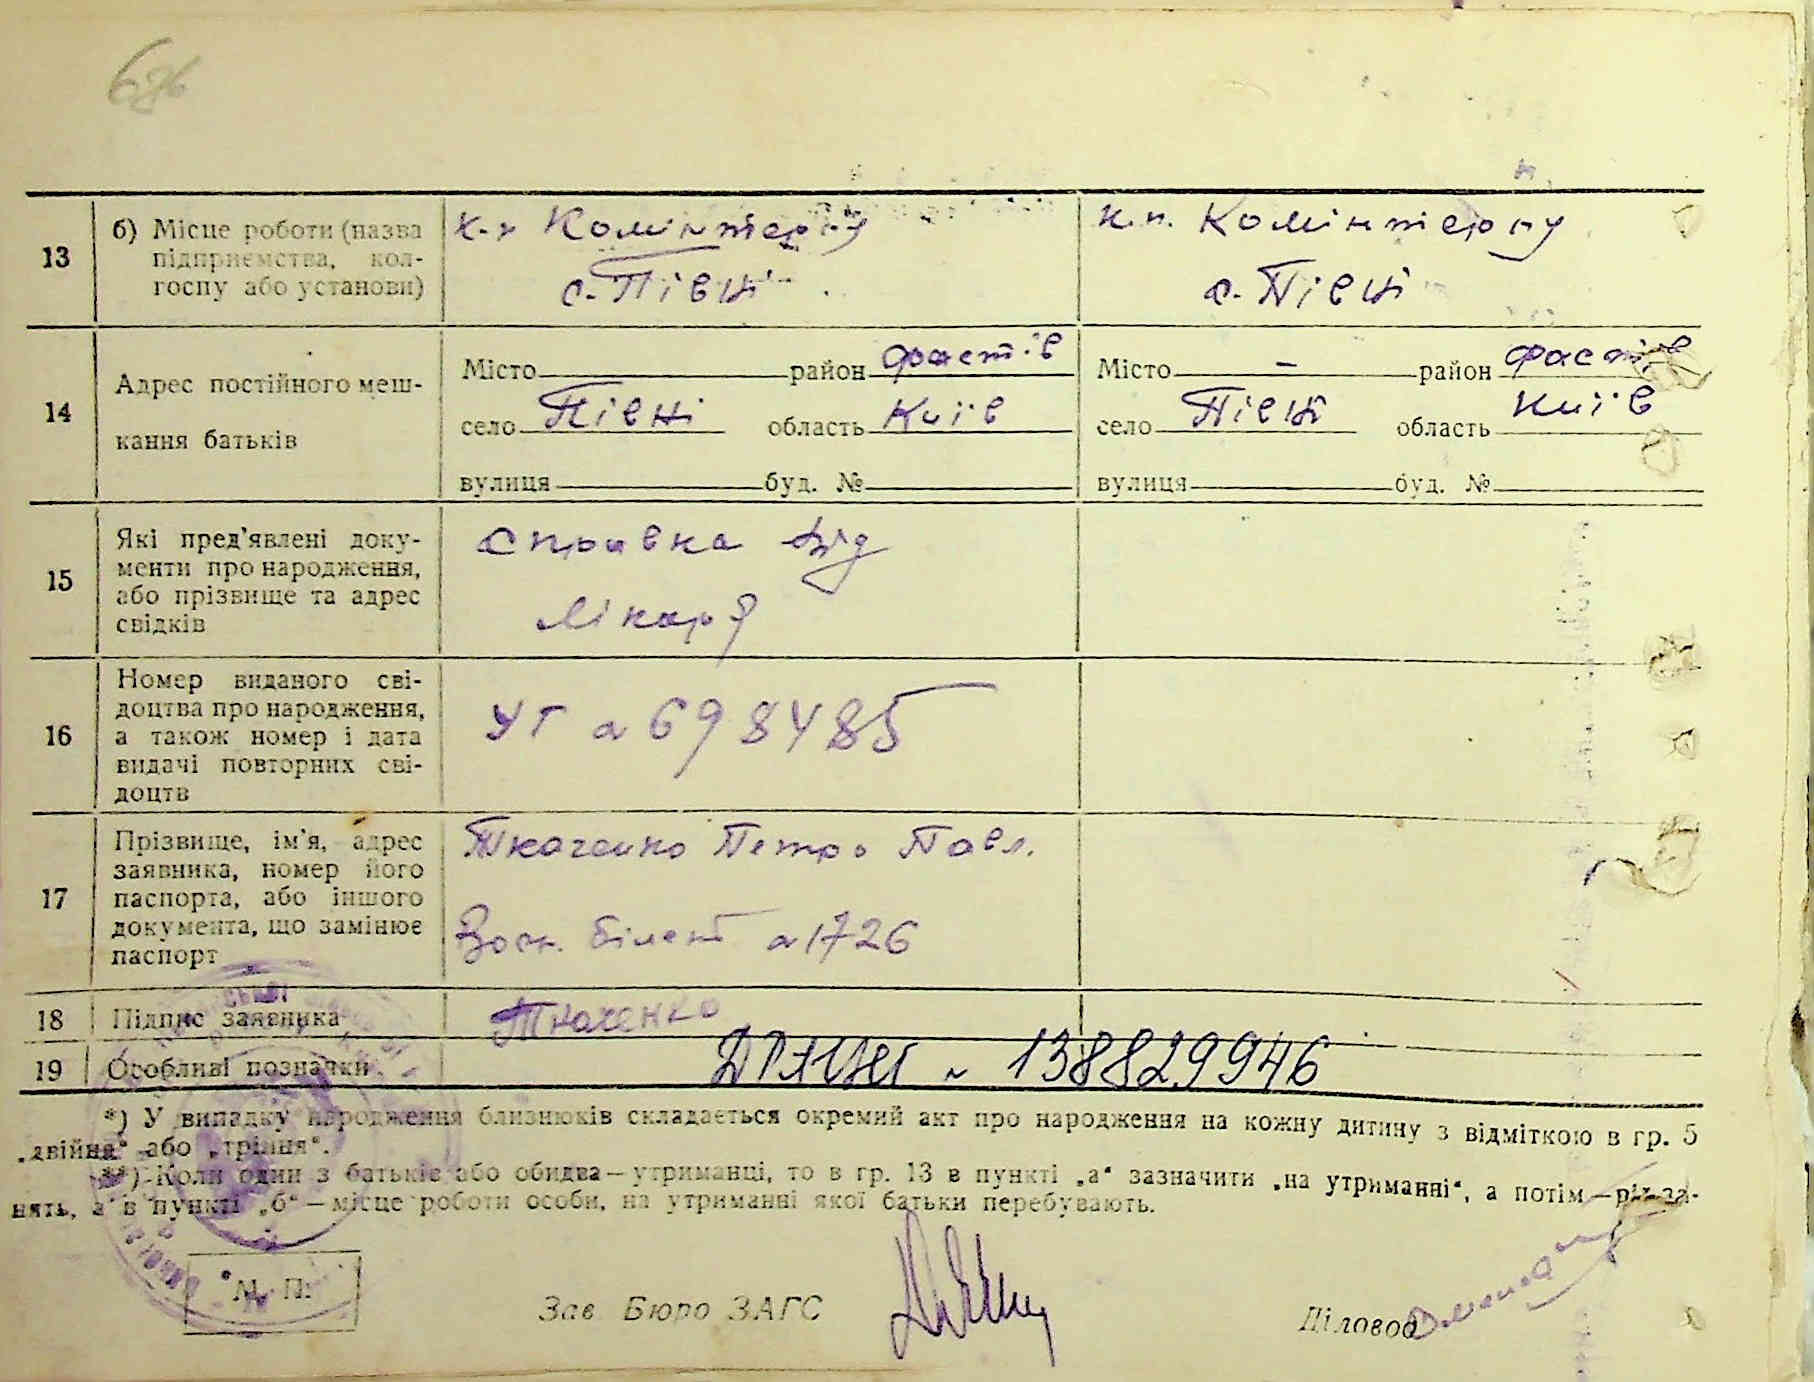 13
б) Місце роботи (назва
підприємства, кол-
госпу або установи)
к-п Комінтерну
с. Півні
к.п. Комінтерну
с. Півні
14
Адрес постійного меш-
кання батьків
Місто район Фастів
село Півні область Київ
вулиця буд. №
Місто – район Фастів
село Півні область Київ
вулиця буд. №
15
Які пред'явлені доку-
менти про народження,
або прізвище та адрес
свідків
Справка від
лікаря
16
Номер виданого сві-
доцтва про народження,
а також номер і дата
видачі повторних сві-
доцтв
УГ № 698485
17
Прізвище, ім'я, адрес
заявника, номер його
паспорта, або іншого
документа, що замінює
паспорт
Ткаченко Петро Павл.
білет № 1726
18
Підпис заявника
Ткаченко
19
Особливі позначки
ДРАЦСГ № 138829946
*) У випадку народження близнюків складається окремий акт про народження на кожну дитину з відміткою в гр. 5
„двійня“ або „трійня“.
**) Коли один з батьків або обидва—утриманці, то в гр. 13 в пункті „а“ зазначити „на утриманні“, а потім—рід за-
нять, а в пункті „б“—місце роботи особи, на утриманні якої батьки перебувають.
М. П.
Зав. Бюро ЗАГС
Діловод